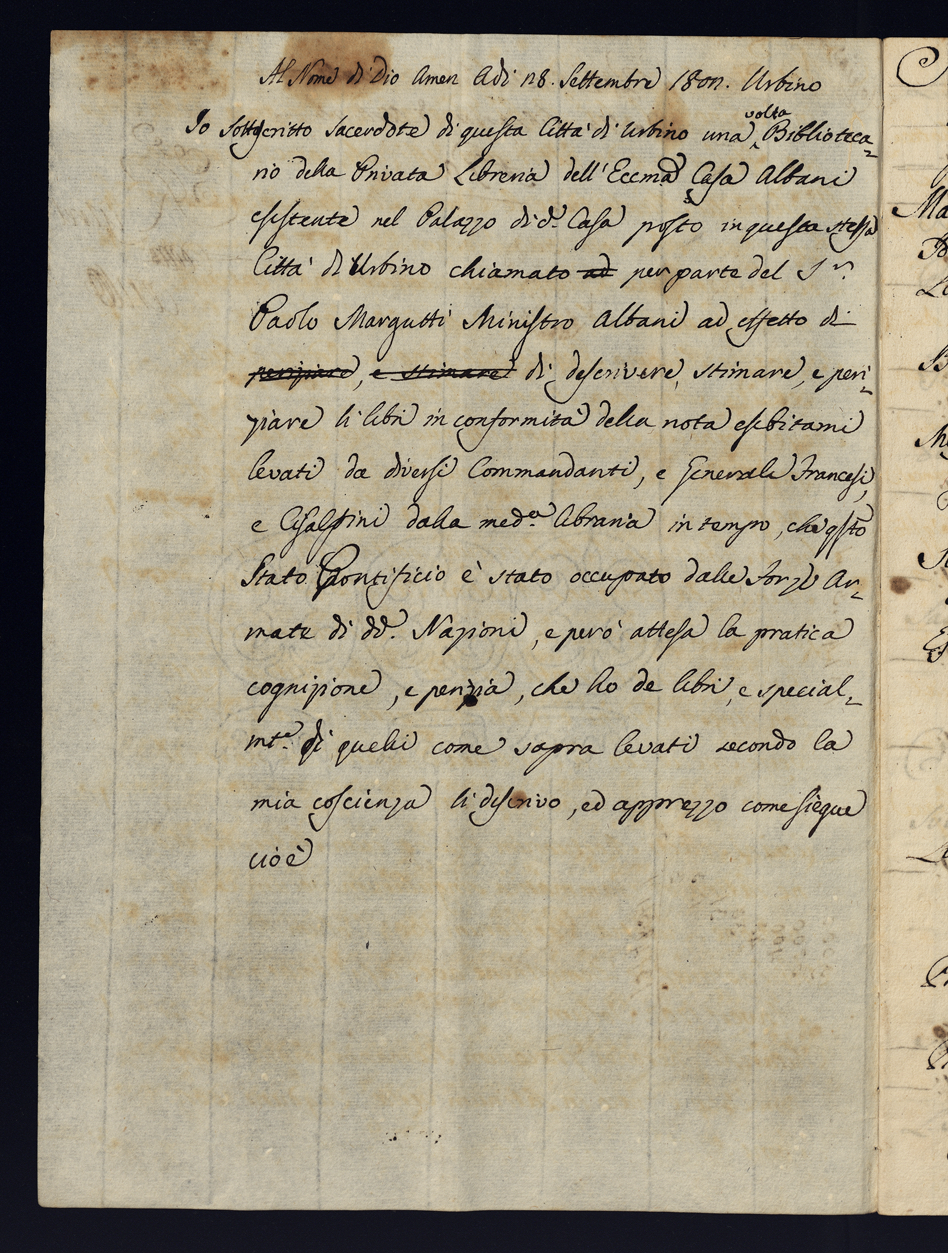 Al Nome di Dio Amen Adi 28. Settembre 1801. Urbino
Io sottoscritto Sacerdote di questa Città di Urbino una volta Biblioteca=
rio della Privata Libreria dell'Eccma Casa Albani
esistente nel Palazzo di d.a Casa posto in questa stessa
Città di Urbino chiamato ad per parte del S.r
Paolo Margutti Ministro Albani ad effetto di
periziare, e stimare di descrivere, stimare, e peri=
ziare li libri in conformità della nota esibitami
levati da diversi Commandanti, e Generali Francesi,
e Cisalpini dalla med.a Libraria in tempo, che qsto
Stato Pontificio è stato occupato dalle forze Ar=
mate di dd.e Nazioni, e però attesa la pratica
cognizione, e perizia, che ho de libri, e special=
mte. di quelli come sopra levati secondo la
mia coscienza li descrivo, ed apprezzo come siegue
cioè